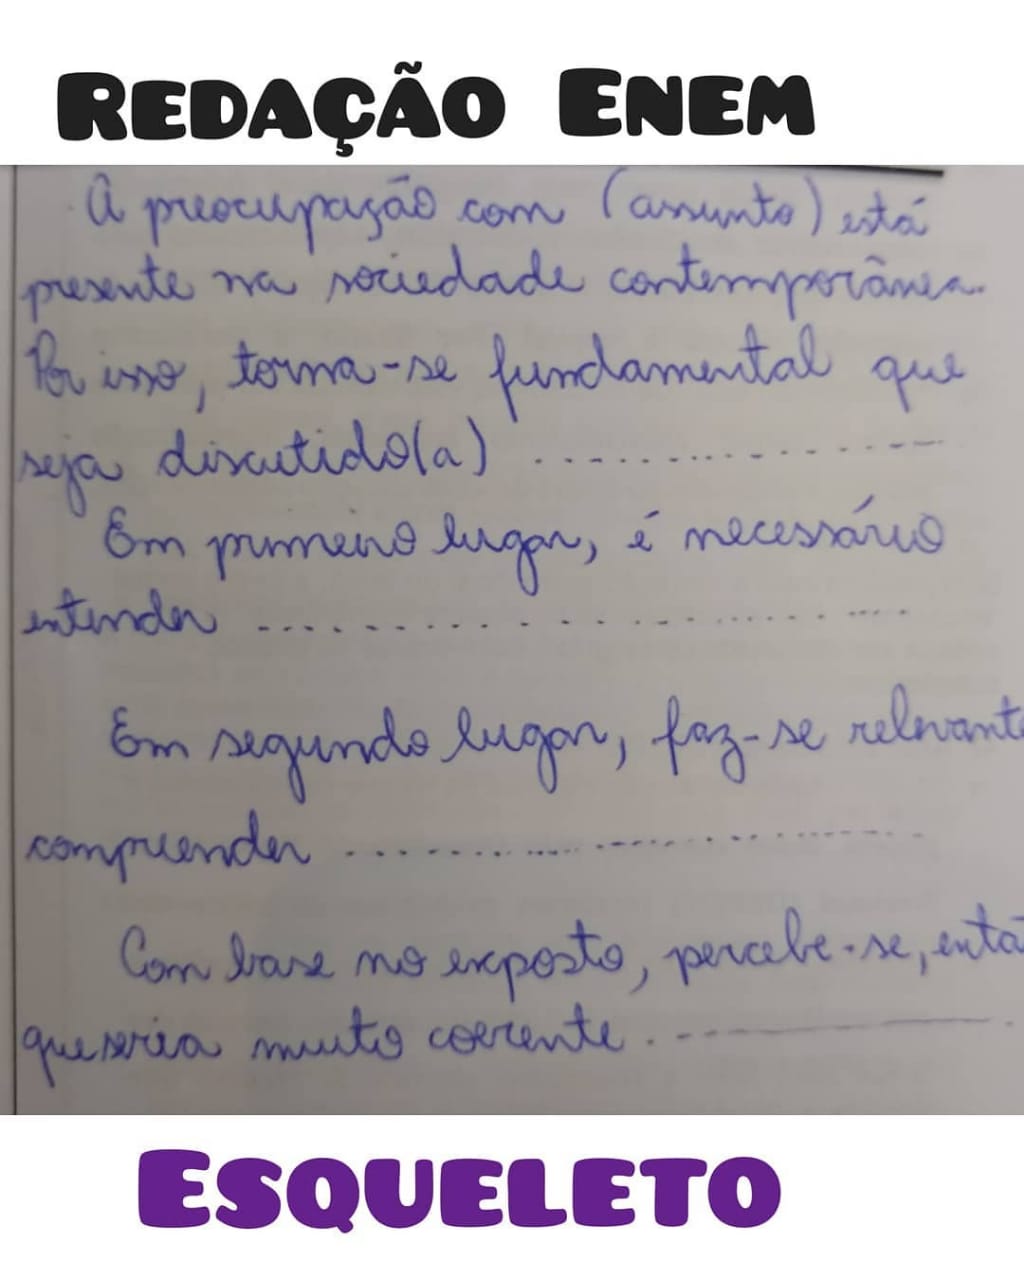 REDAÇÃO ENEM
A preocupação com (assunto) está
presente na sociedade contemporânea.
Por isso, torna-se fundamental que
seja discutido(a) ..................
Em primeiro lugar, é necessário
entender ..................
Em segundo lugar, faz-se relevante
compreender ..................
Com base no exposto, percebe-se, entã
que seria muito coerente ..................
ESQUELETO